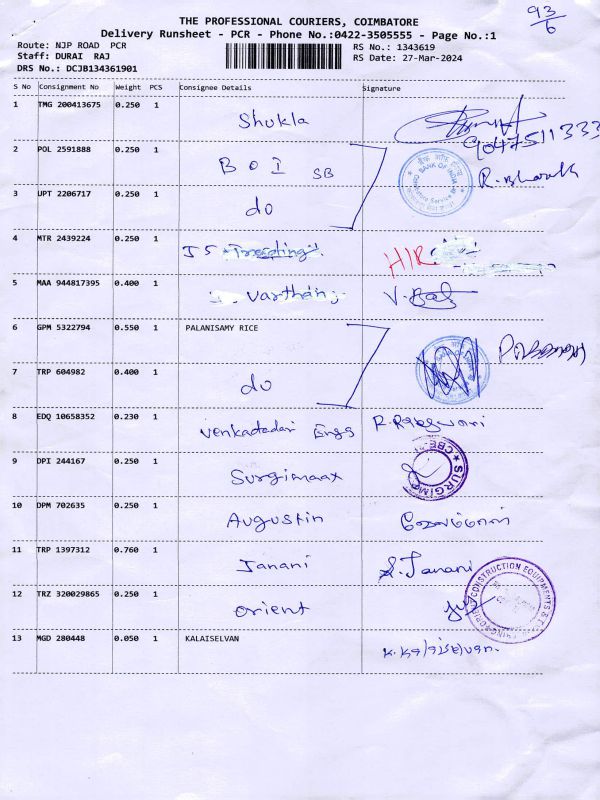 93/6
THE PROFESSIONAL COURIERS, COIMBATORE
Delivery Runsheet - PCR - Phone No.:0422-3505555 - Page No.:1
Route: NJP ROAD PCR
Staff: DURAI RAJ
DRS No.: DCJB134361901
RS No.: 1343619
RS Date: 27-Mar-2024
S No Consignment No Weight PCS Consignee Details Signature
1 TMG 200413675 0.250 1 Shukla 9047511333
2 POL 2591888 0.250 1 BOI SB R. Bharath
BANK OF INDIA
3 UPT 2206717 0.250 1 do
4 MTR 2439224 0.250 1 JS Treading
5 MAA 944817395 0.400 1 Varthan
6 GPM 5322794 0.550 1 PALANISAMY RICE
7 TRP 604982 0.400 1 do
8 EDQ 10658352 0.230 1 Venkatadari Engg R. Rajeswari
9 DPI 244167 0.250 1 Surgimaax
SURGIM CBE
10 DPM 702635 0.250 1 Augustin
11 TRP 1397312 0.760 1 Janani S. Janani
12 TRZ 320029865 0.250 1 orient
CONSTRUCTION EQUIPMENTS &
13 MGD 280448 0.050 1 KALAISELVAN